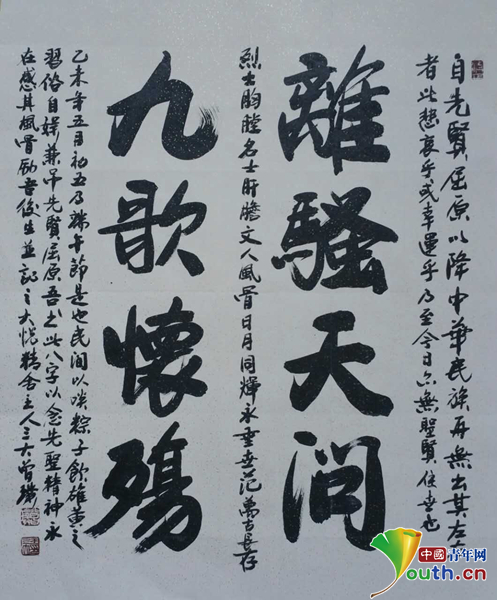 自先賢屈原以降中華民族再無出其左右
者此悲哀乎或幸運乎乃至今日亦無聖賢住世也
離騷天問
烈士胸膛名士肝膽文人風骨日月同輝永垂世范萬古長存
九歌懷殤
乙未年五月初五乃端午節是也民间以啖粽子飲雄黄之
習俗自娱兼吊先賢屈原吾书此八字以念先聖精神永
在感其風骨励吾後生並記之大悦精舍主人三大曾
中國青年网
Youth.cn